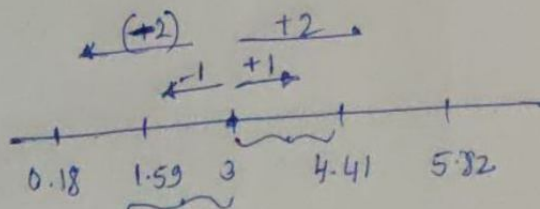 (-2) +2
-1 +1
0.18 1.59 3 4.41 5.82